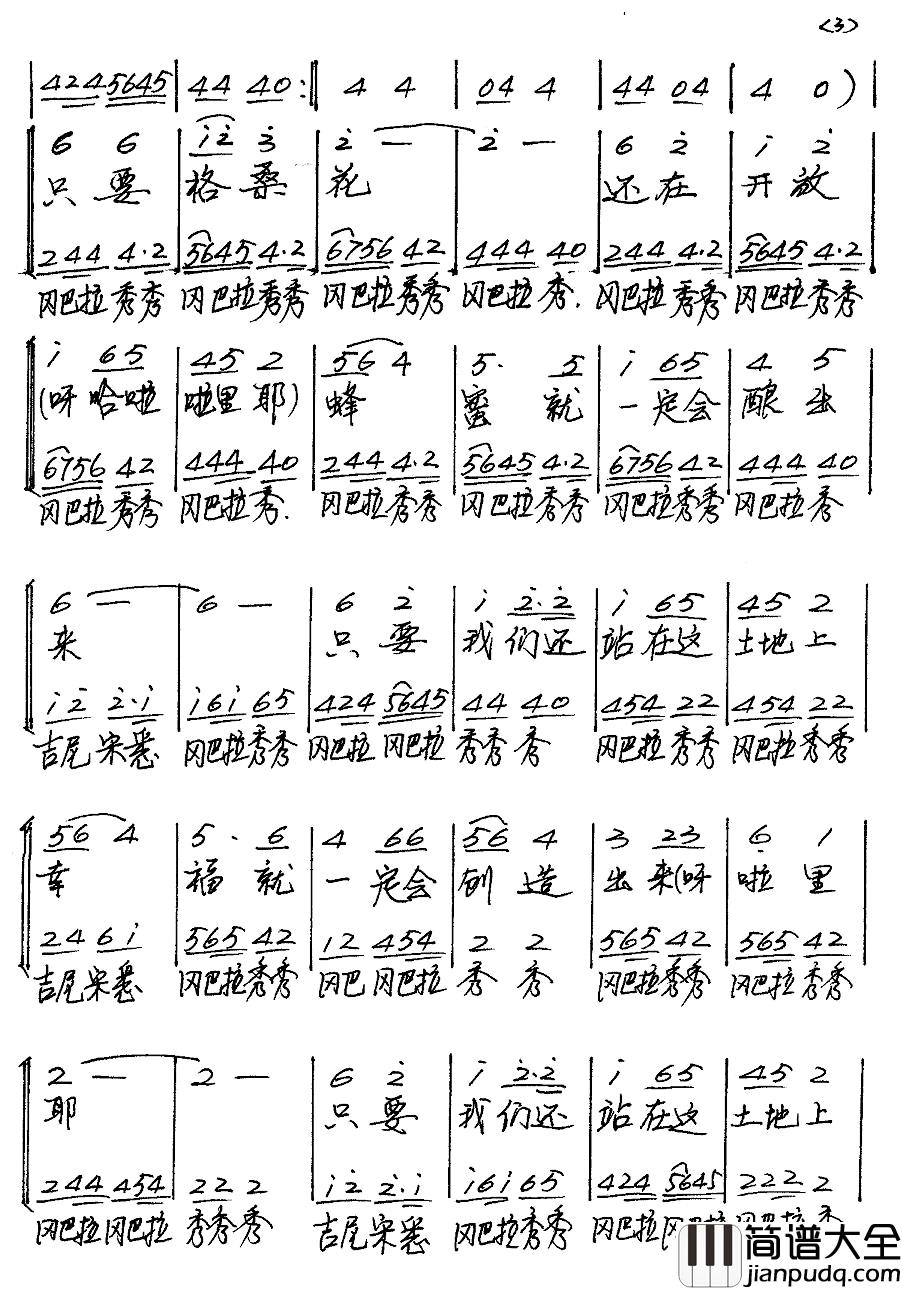 <3>
424 5645 | 44 40 :|| 4 4 | 04 4 | 44 04 | 4 0 ) |
6 6 | i2 3 | 2 — | 2 — | 6 2 | i 2
只要 格桑 花 还在 开放
244 4·2 | 5645 4·2 | 6756 42 | 444 40 | 244 4·2 | 5645 4·2
冈巴拉秀秀 冈巴拉秀秀 冈巴拉秀秀 冈巴拉秀. 冈巴拉秀秀 冈巴拉秀秀
i 65 | 45 2 | 56 4 | 5· 5 | i 65 | 4 5
(呀哈啦 啦里耶) 蜂 蜜就 一定会 酿出
6756 42 | 444 40 | 244 4·2 | 5645 4·2 | 6756 42 | 444 40
冈巴拉秀秀 冈巴拉秀. 冈巴拉秀秀 冈巴拉秀秀 冈巴拉秀秀 冈巴拉秀
6 — | 6 — | 6 2 | i 2·2 | i 65 | 45 2
来 只要 我们还 站在这 土地上
i2 2·i | i6i 65 | 424 5645 | 44 40 | 454 22 | 454 22
吉尾宋 冈巴拉秀秀 冈巴拉 冈巴拉 秀秀秀 冈巴拉秀秀 冈巴拉秀秀
56 4 | 5· 6 | 4 66 | 56 4 | 3 23 | 6 1
幸 福就 一定会 创造 出来(呀 啦里
24 6i | 565 42 | 12 454 | 2 2 | 565 42 | 565 42
吉尾宋 冈巴拉秀秀 冈巴 冈巴拉 秀秀 冈巴拉秀秀 冈巴拉秀秀
2 — | 2 — | 6 2 | i 2·2 | i 65 | 45 2
耶 只要 我们还 站在这 土地上
244 454 | 22 2 | i2 2·i | i6i 65 | 424 5645 | 222 2
冈巴拉 冈巴拉 秀秀秀 吉尾宋 冈巴拉秀秀 冈巴拉
简谱大全
jianpudq.com